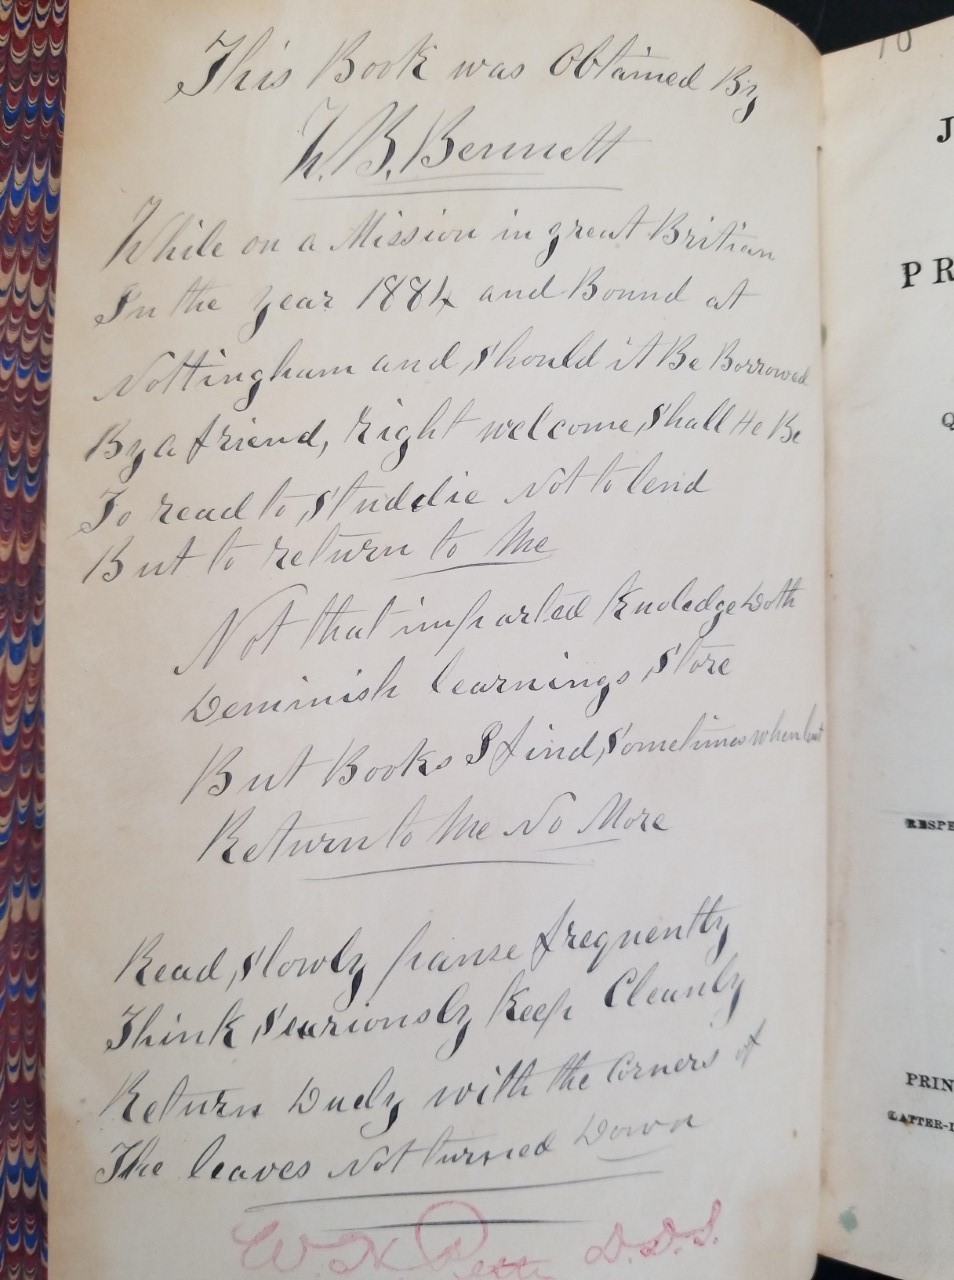 This Book was Obtained By
W. B. Bennett
While on a Mission in great Britian
In the year 1884 and Bound at
Nottingham and should it Be Borrowed
By a friend, right welcome shall He Be
To read to studdie Not to lend
But to return to Me
Not that imparted Knoledge Doth
Deminish learnings store
But Books I find sometimes when lent
Return to Me No More
Read slowly pause frequently
Think seariously Keep Cleanly
Return Duely with the Corners of
The leaves Not turned Down
D.D.S.
10
J
PR
Q
RESPE
PRIN
LATTER-D